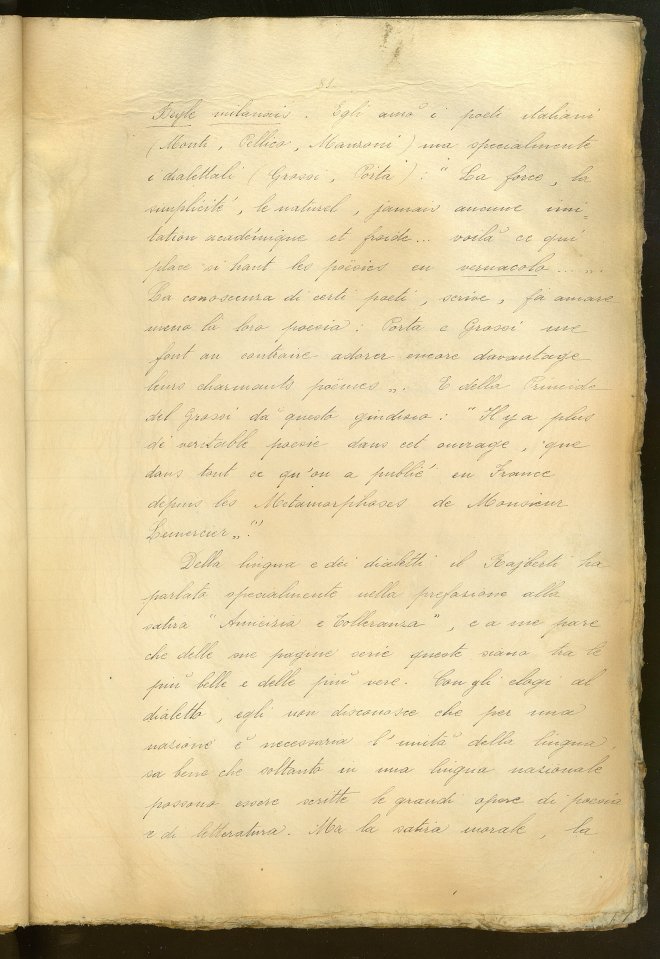 81
Beyle milanais. Egli amò i poeti italiani
(Monti, Pellico, Manzoni) ma specialmente
i dialettali (Grossi, Porta): "La force, la
simplicité, le naturel, jamais aucune imi-
tation académique et froide... voilà ce qui
place si haut les poësies en vernacolo...".
La conoscenza di certi poeti, scrive, fa amare
meno la loro poesia: Porta e Grossi me
font au contraire adorer encore davantage
leurs charmants poëmes". E della Prineide
del Grossi dà questo giudizio: "Il y a plus
di veritable poesie dans cet ouvrage, que
dans tout ce qu'on a publié en France
depuis les Metamorphoses de Monsieur
Lemercier".(1)
Della lingua e dei dialetti il Rajberti ha
parlato specialmente nella prefazione alla
satira "Amicizia e Tolleranza", e a me pare
che delle sue pagine serie queste siano tra le
più belle e delle più vere. Con gli elogi al
dialetto, egli non disconosce che per una
nazione è necessaria l'unità della lingua,
sa bene che soltanto in una lingua nazionale
possono essere scritte le grandi opere di poesia
e di letteratura. Ma la satira morale, la